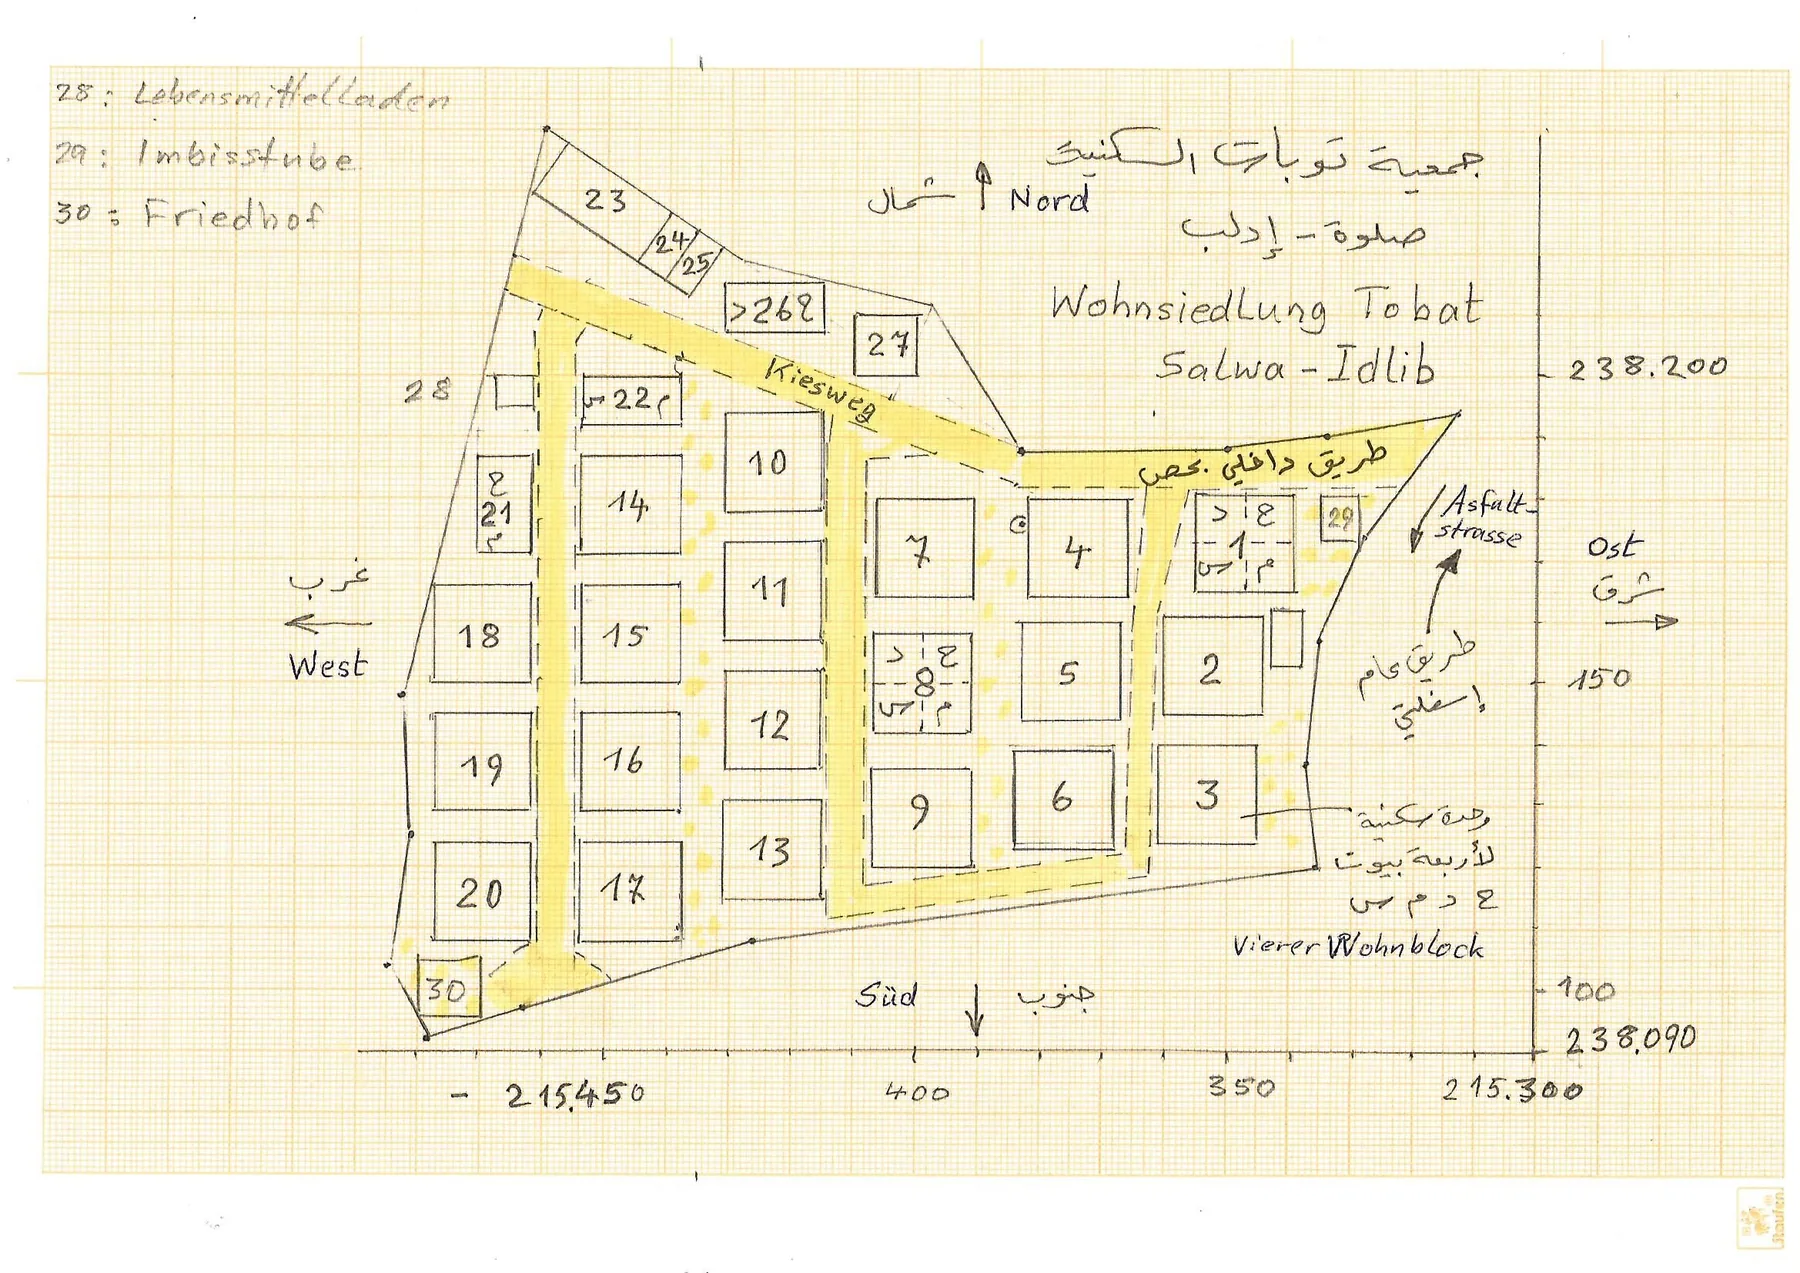 28: Lebensmittelladen
29: Imbisstube
30: Friedhof
جمعية توبات السكنية
صلوة - إدلب
Wohnsiedlung Tobat
Salwa - Idlib
شمال
Nord
23
24
25
>26ج
27
Kiesweg
طريق داخلي بحص
28
س 22 م
238.200
10
ح
21
م
14
7
4
د ح
1
س م
29
Asfalt-
strasse
Ost
شرق
غرب
West
18
15
11
د ح
8
س م
5
2
طريق عام
إسفلتي
150
19
16
12
9
6
3
وحدة سكنية
لأربعة بيوت
ح د م س
Vierer Wohnblock
20
17
13
30
Süd
جنوب
100
238.090
- 215.450
400
350
215.300
Staufen